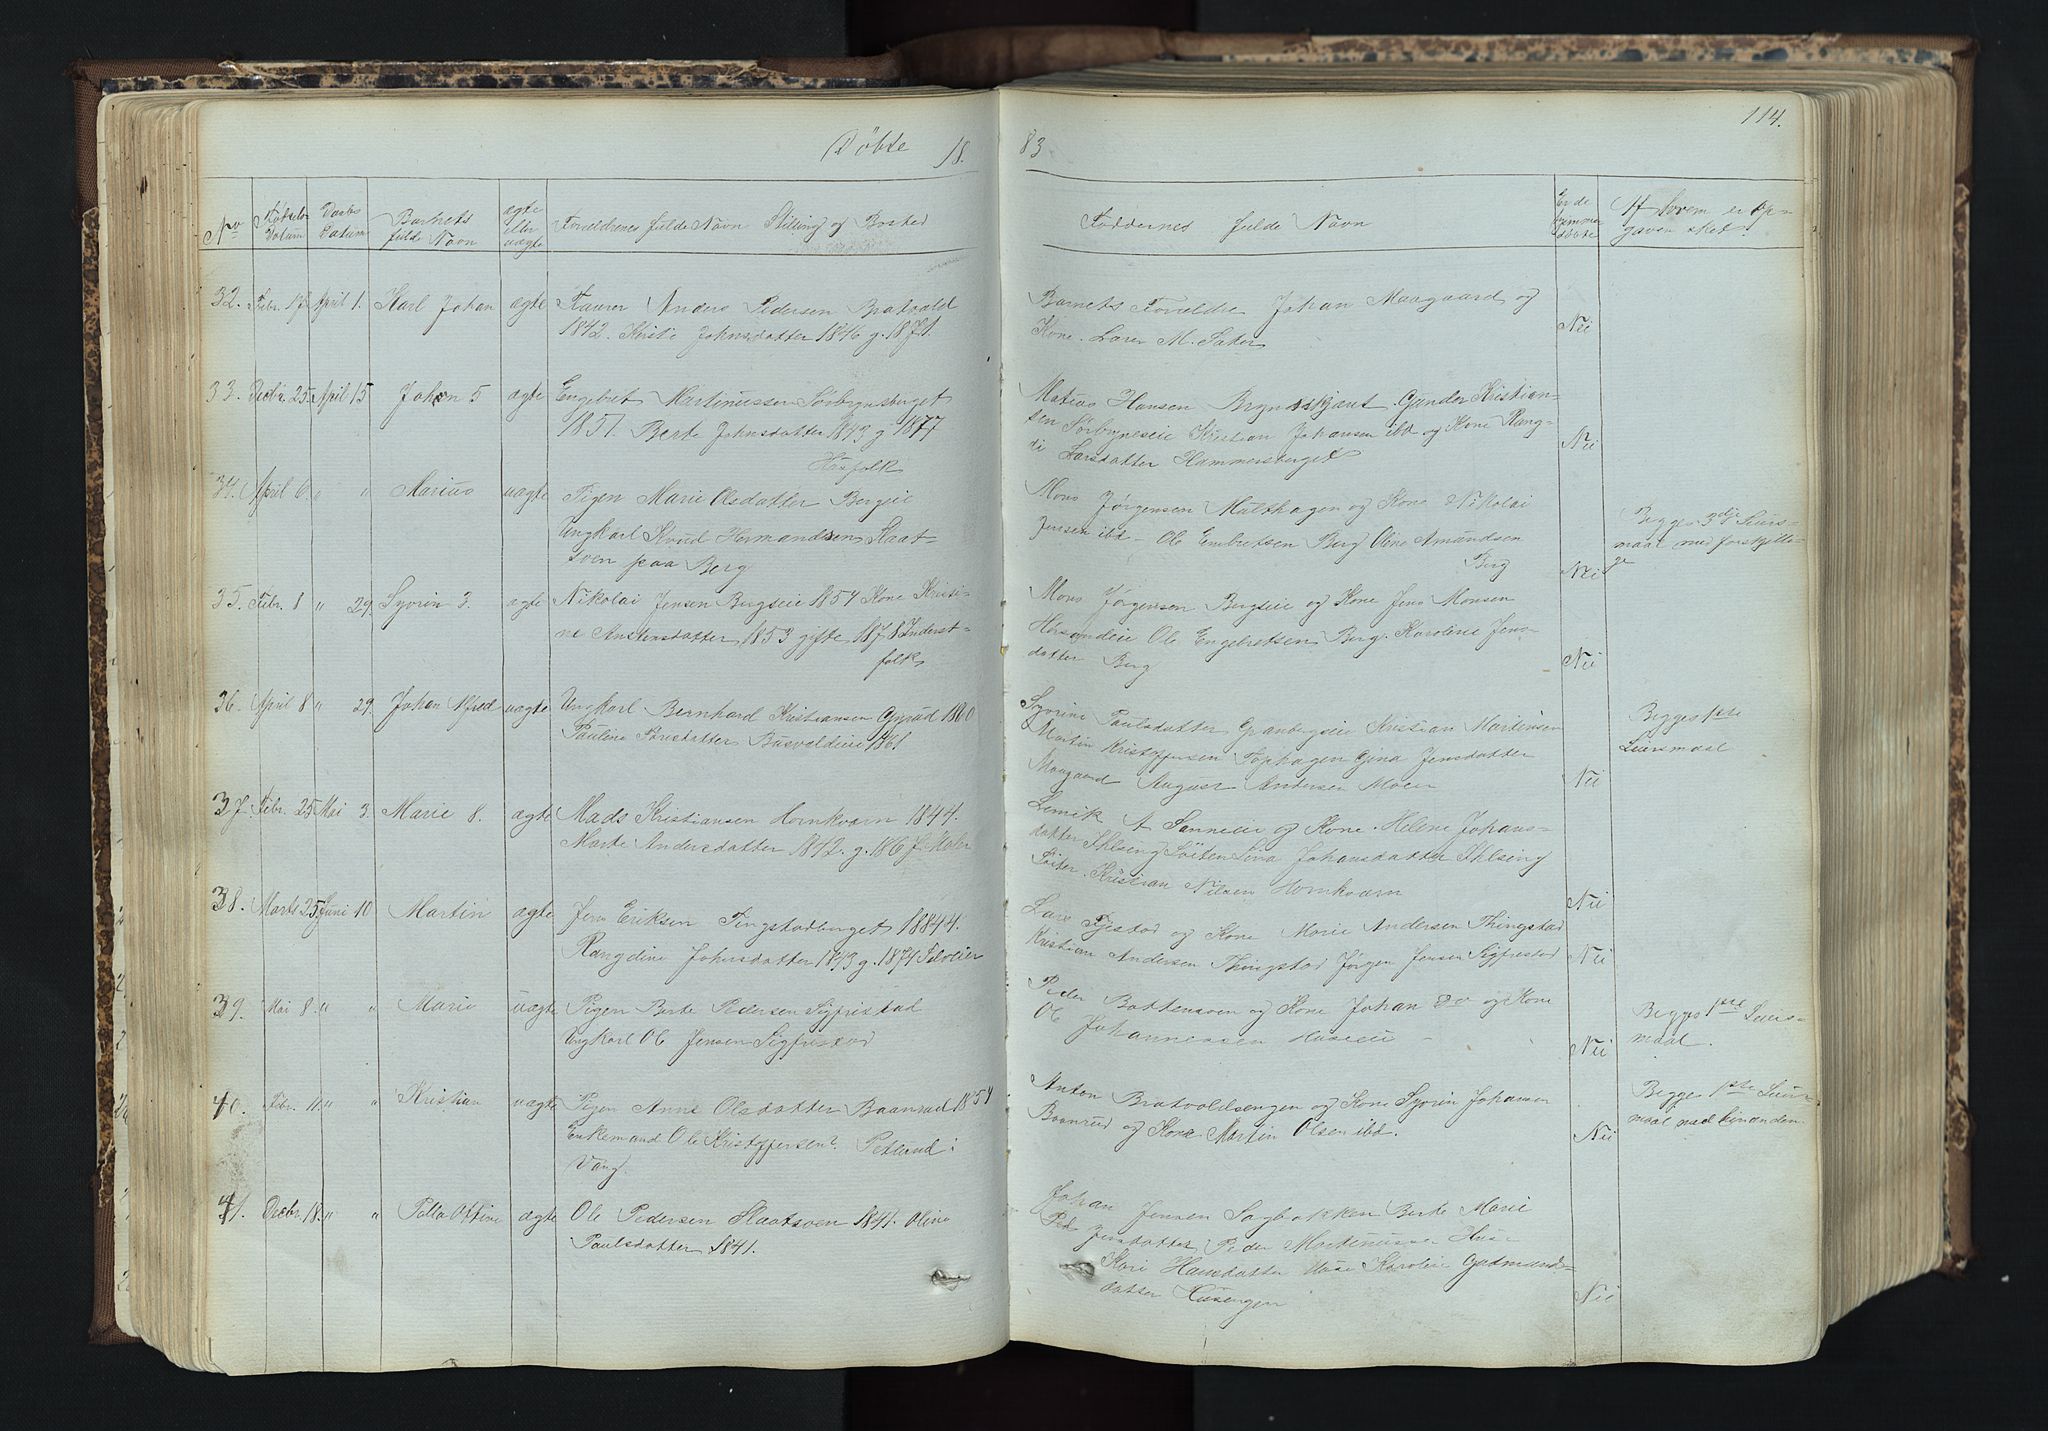 Döbte 18
83
114.
No
Fötsels Datum
Daabs Datum
Barnets fulde Navn
ægte eller uægte
Forældrenes fulde Navn Stilling og Bosted
Faddernes fulde Navn
Er de
Af hvem er Op-
gaven sket?
32. Febr. 17 April 1. Karl Johan ægte
Anders Pedersen Bratvold
1842. Kristi Johnsdatter 1846 g. 1871.
Barnets Forældre Johan Maagaard og
Kone. Lars M. Sater
Nei
33. 25. April 15 Johan 5 ægte
Engebret Martinussen Sörbynsberget
1851. Berte Johnsdatter 1843 g 1877
Husfolk
Matias Hansen Gunder Kristian-
sen Sörbyneseie Kristian Johansen ibd og Kone Rang-
di Larsdatter Hammersberget
Nei
34. April 6. " " Marius uægte
Pigen Marie Olsdatter Bergeie
Ungkarl Knud Hermandsen Slaat-
sven paa Berg
Mons Jørgensen Malthagen og Kone Nikolai
Jensen ibd - Ole Embretsen Berg Oline Amundsen
Berg
Nei
Begges 3die Leiers-
maal med forskjelli-
ge
35. Febr. 8 " 29. Syverin 3. ægte
Nikolai Jensen Bergseie 1854 Kone Kristi-
ne Austensdatter 1853 gifte 1878 Inderst-
folk
Mons Jørgensen Bergseie og Kone Jens Monsen
Ole Engebretsen Berg. Karoline Jens-
datter Berg
Nei
36. April 8 " 29. Johan Alfred uægte
Ungkarl Bernhard Kristiansen 1860
Pauline 1861
Syverine Paulsdatter Granbergseie Kristian Martinsen
Martin Kristoffersen Tophagen Gina Jensdatter
Maagaard August Andersen Moen
Nei
Begges 1ste
Leiersmaal
37 Febr. 25 Mai 3. Marie 8. ægte
Mads Kristiansen Hornkvarn 1844.
Marte Andersdatter 1842. g. 1867
Lemik A Sanneeie og Kone. Helene Johans-
datter Lina Johansdatter
Kristian Nilsen Hornkvarn
Nei
38. Marts 25 Juni 10 Martin ægte
Jens Eriksen Tingstadberget 18844.
Rangdine Johnsdatter 1843 g. 1874 Selveier
Lars Fjestad og Kone Marie Andersen Thingstad
Kristian Andersen Thingstad Jørgen Jensen Sigfrestad
Nei
39. Mai 8. " " Marie uægte
Pigen Berte Pedersen Sigfristad
Ungkarl Ole Jensen Sigfristad
Peder og Kone Johan Do og Kone
Ole Johannessen Huseeie
Nei
Begges 1ste Leiers-
maal.
40. Febr. 11. " " Kristian uægte
Pigen Anne Olsdatter Baanrud 1854
Enkemand Ole Kristoffersen? Petlund i
Vang.
Anton Bratvoldsengen og Kone Syverin Johansen
Baanrud og Kone Martin Olsen ibd.
Nei
Begges 1ste Leiers-
maal med hinanden
41. Decbr. 18. " " Palla Ottine ægte
Ole Pedersen Slaatsven 1841. Oline
Paulsdatter 1841.
Johan Jensen Sagbakken Berte Marie
Jensdatter Peder Martinussen Huse
Kari Hansdatter Huse Karoline Gudmunds-
datter Husengen
Nei